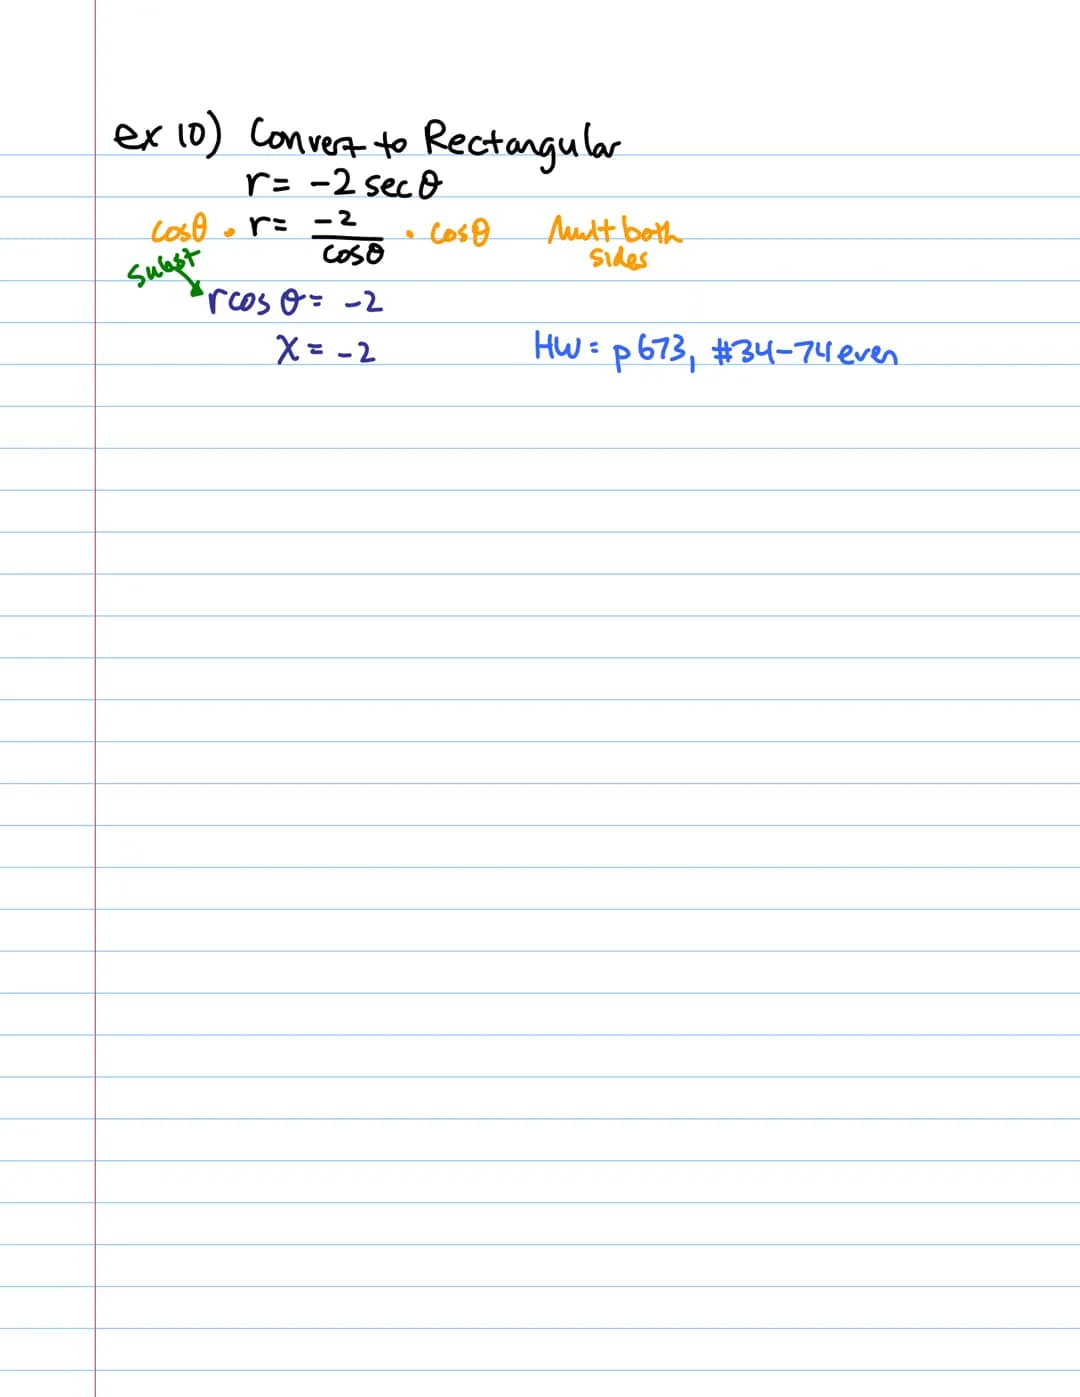 ex 10) Convert to Rectangular
r = -2 sec θ
cosθ · r = -2/cosθ · cosθ Mult both sides
subst
r cos θ = -2
x = -2 HW = p 673, #34-74 even